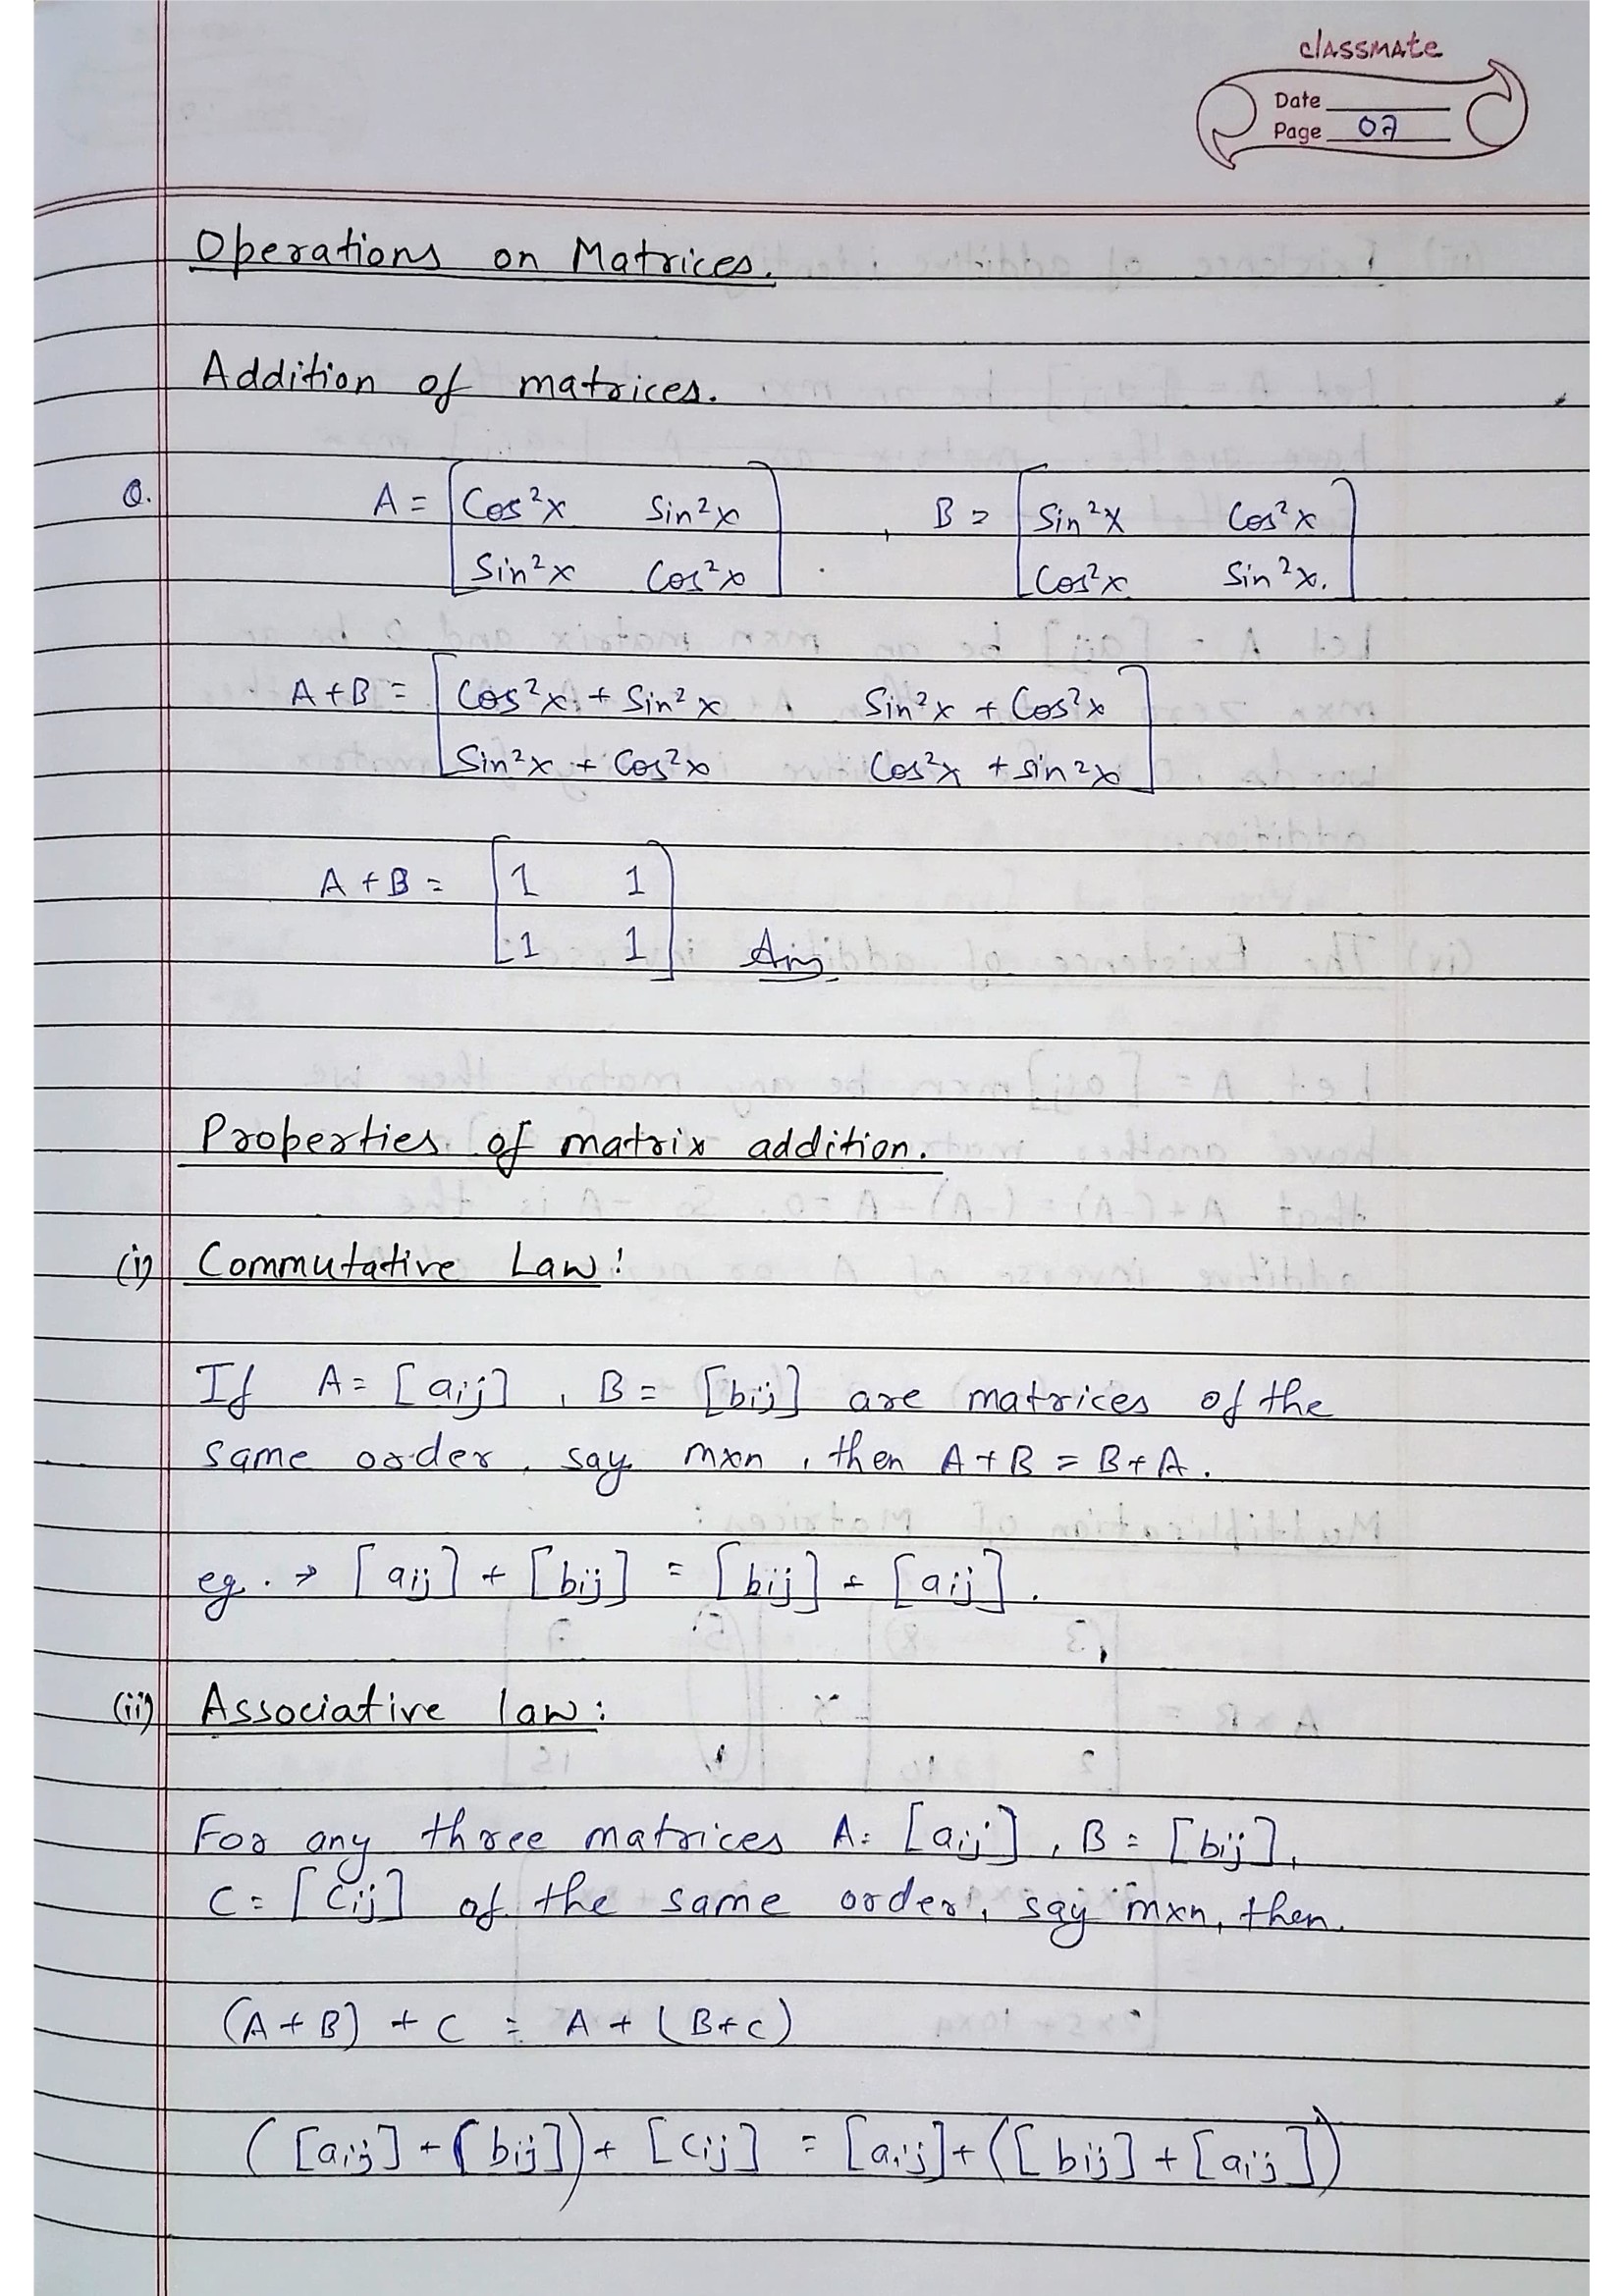 classmate
Date
Page 07
Operations on Matrices.
Addition of matrices.
Q. A = [Cos²x Sin²x] , B = [Sin²x Cos²x]
[Sin²x Cos²x] [Cos²x Sin²x.]
A+B = [Cos²x + Sin²x Sin²x + Cos²x]
[Sin²x + Cos²x Cos²x + sin²x]
A+B = [1 1]
[1 1] Ans
Properties of matrix addition.
(i) Commutative Law:
If A = [aij] , B = [bij] are matrices of the
same order, say mxn, then A+B = B+A.
eg. → [aij] + [bij] = [bij] + [aij].
(ii) Associative law:
For any three matrices A = [aij], B = [bij],
C = [Cij] of the same order, say mxn, then.
(A+B) + C = A + (B+C)
([aij] + [bij]) + [Cij] = [aij] + ([bij] + [aij])